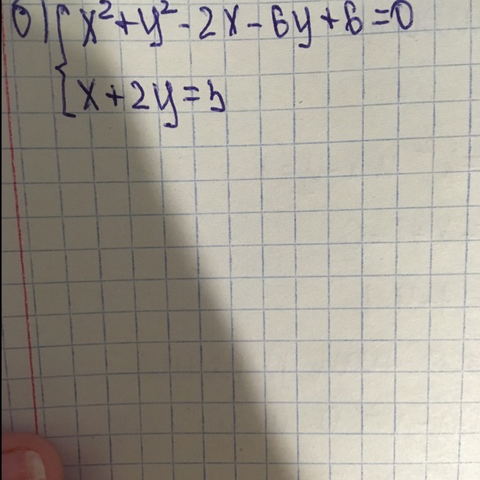 б) { x² + y² - 2x - 6y + 6 = 0
x + 2y = 5